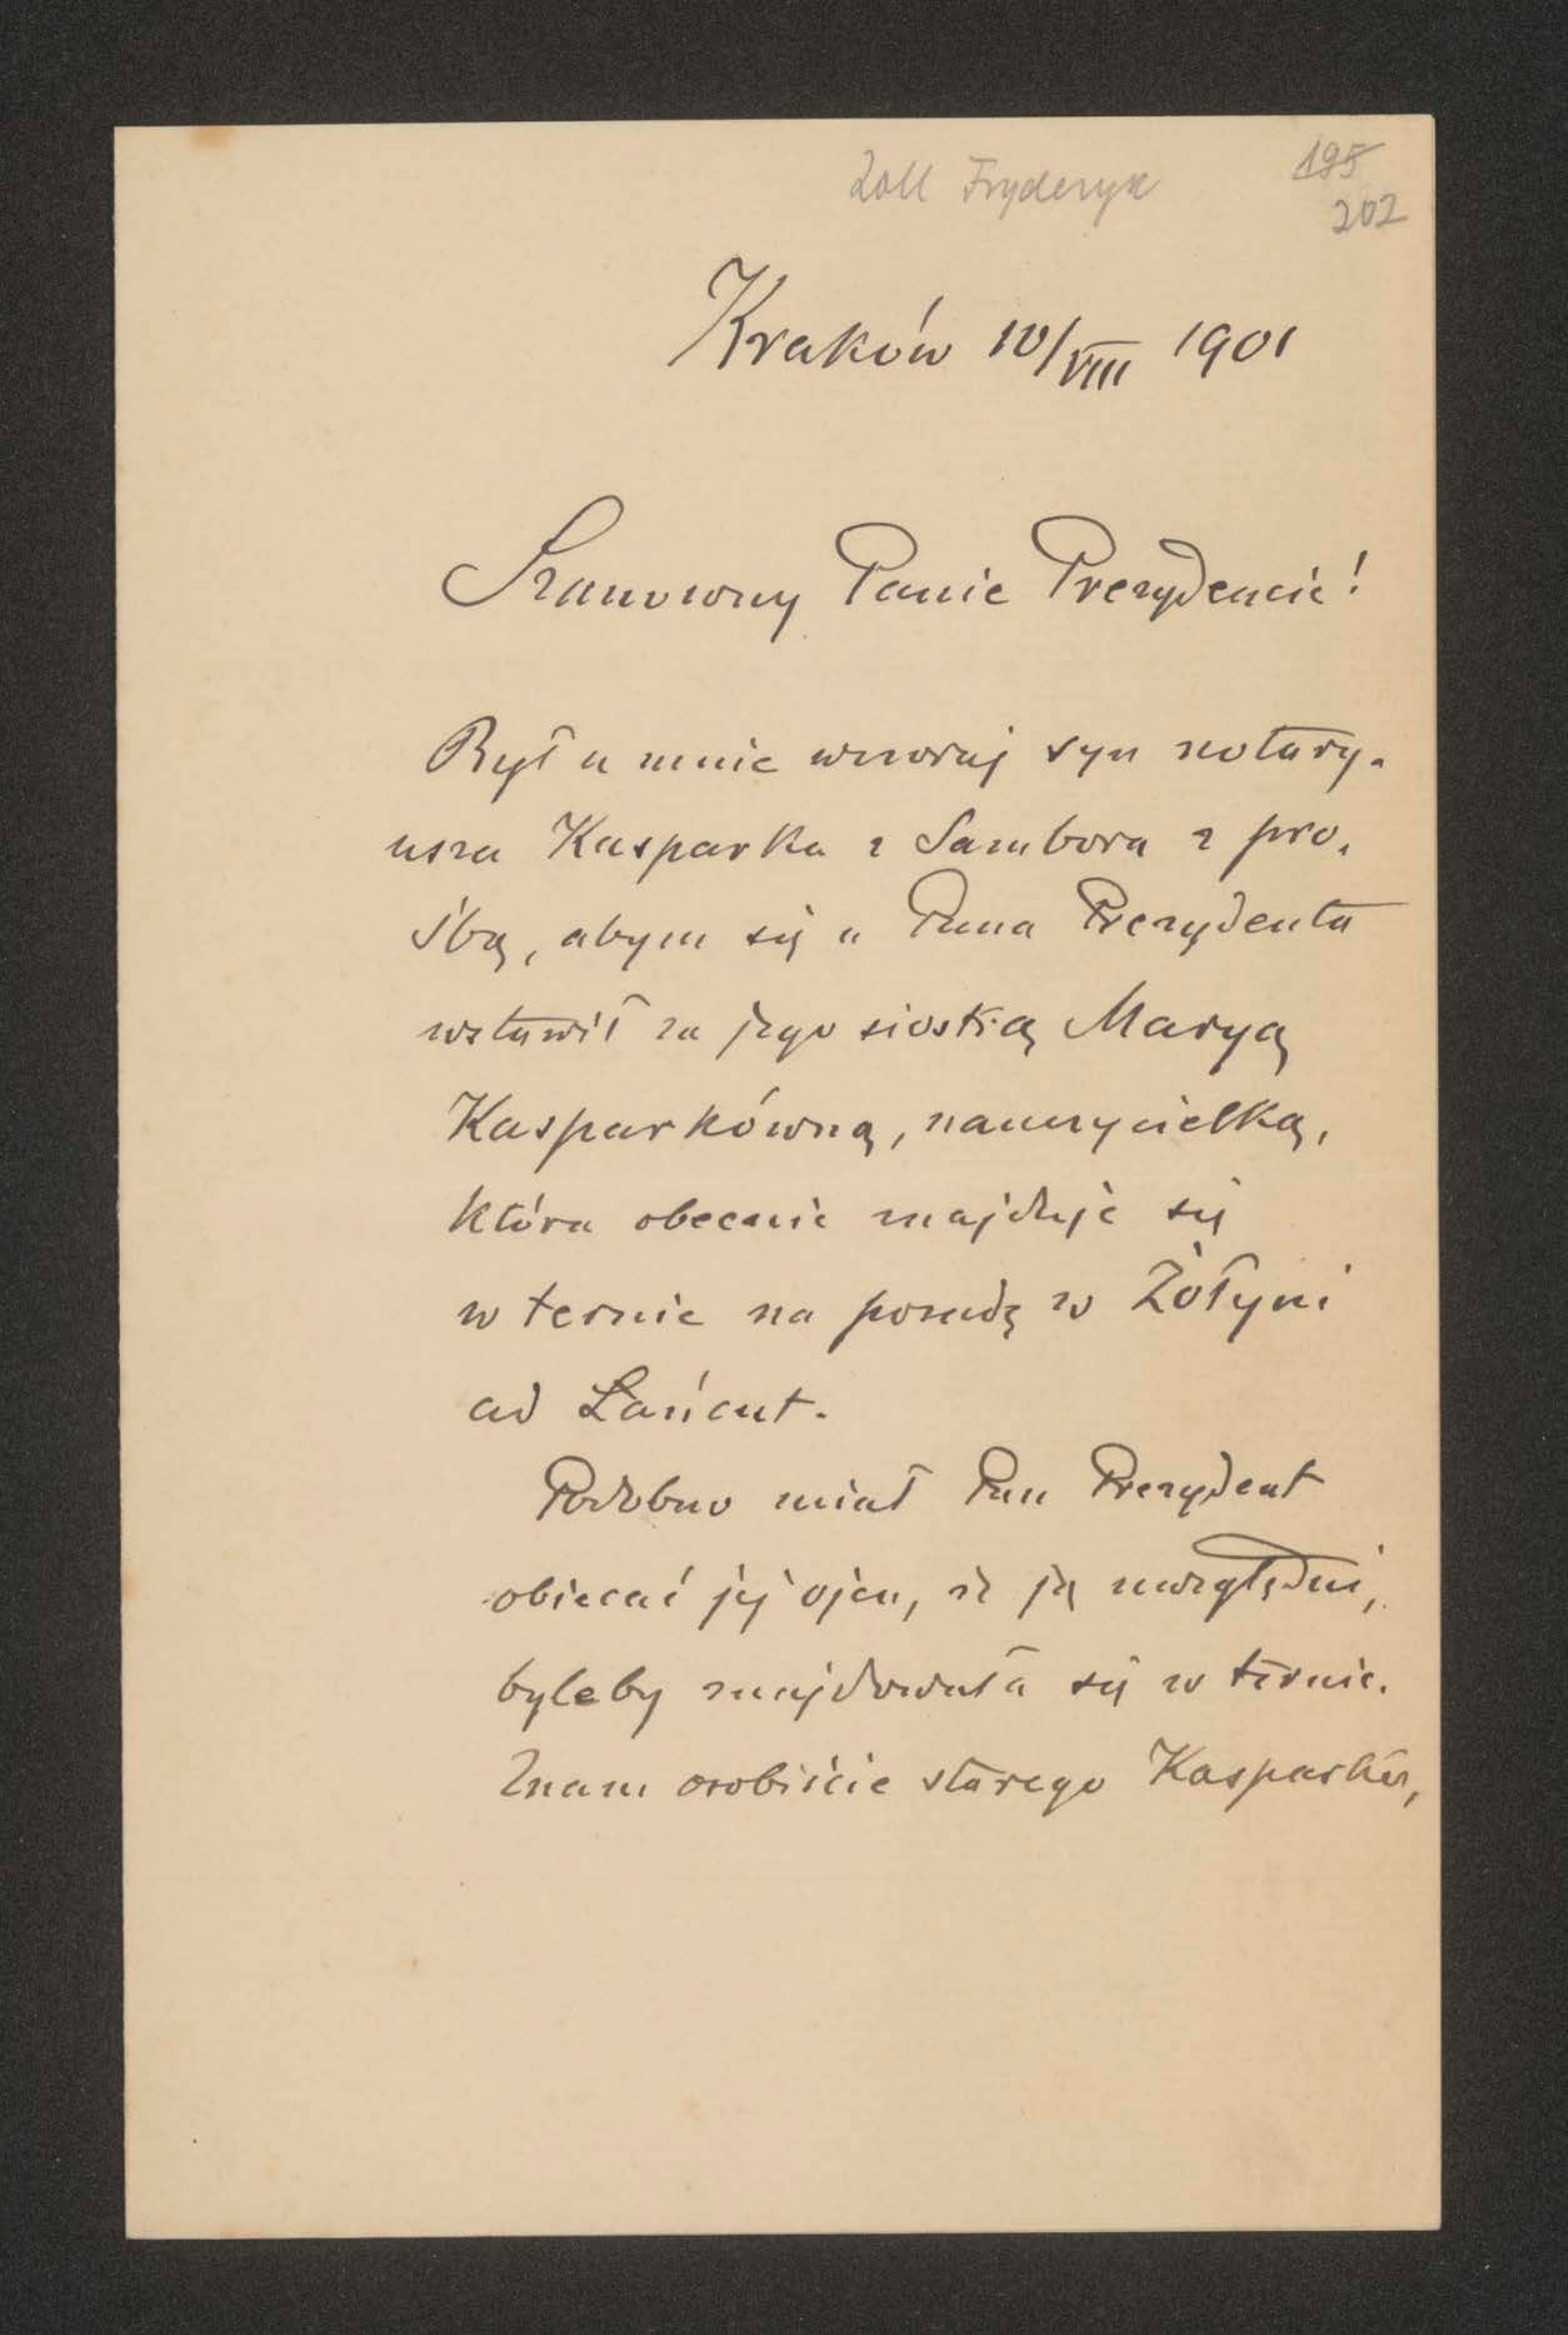 Zoll Fryderyk
195
202
Kraków 10/VIII 1901
Szanowny Panie Prezydencie!
Był u mnie wczoraj syn notary-
usza Kasparka z Sambora z pro-
śbą, abym się u Pana Prezydenta
wstawił za jego siostrą Maryą
Kasparkówną, nauczycielką,
która obecnie znajduje się
w ternie na posadę w Żołyni
ad Łańcut.
Podobno miał Pan Prezydent
obiecać jej ojcu, że ją uwzględni,
byleby znajdowała się w ternie.
Znam osobiście starego Kasparka,